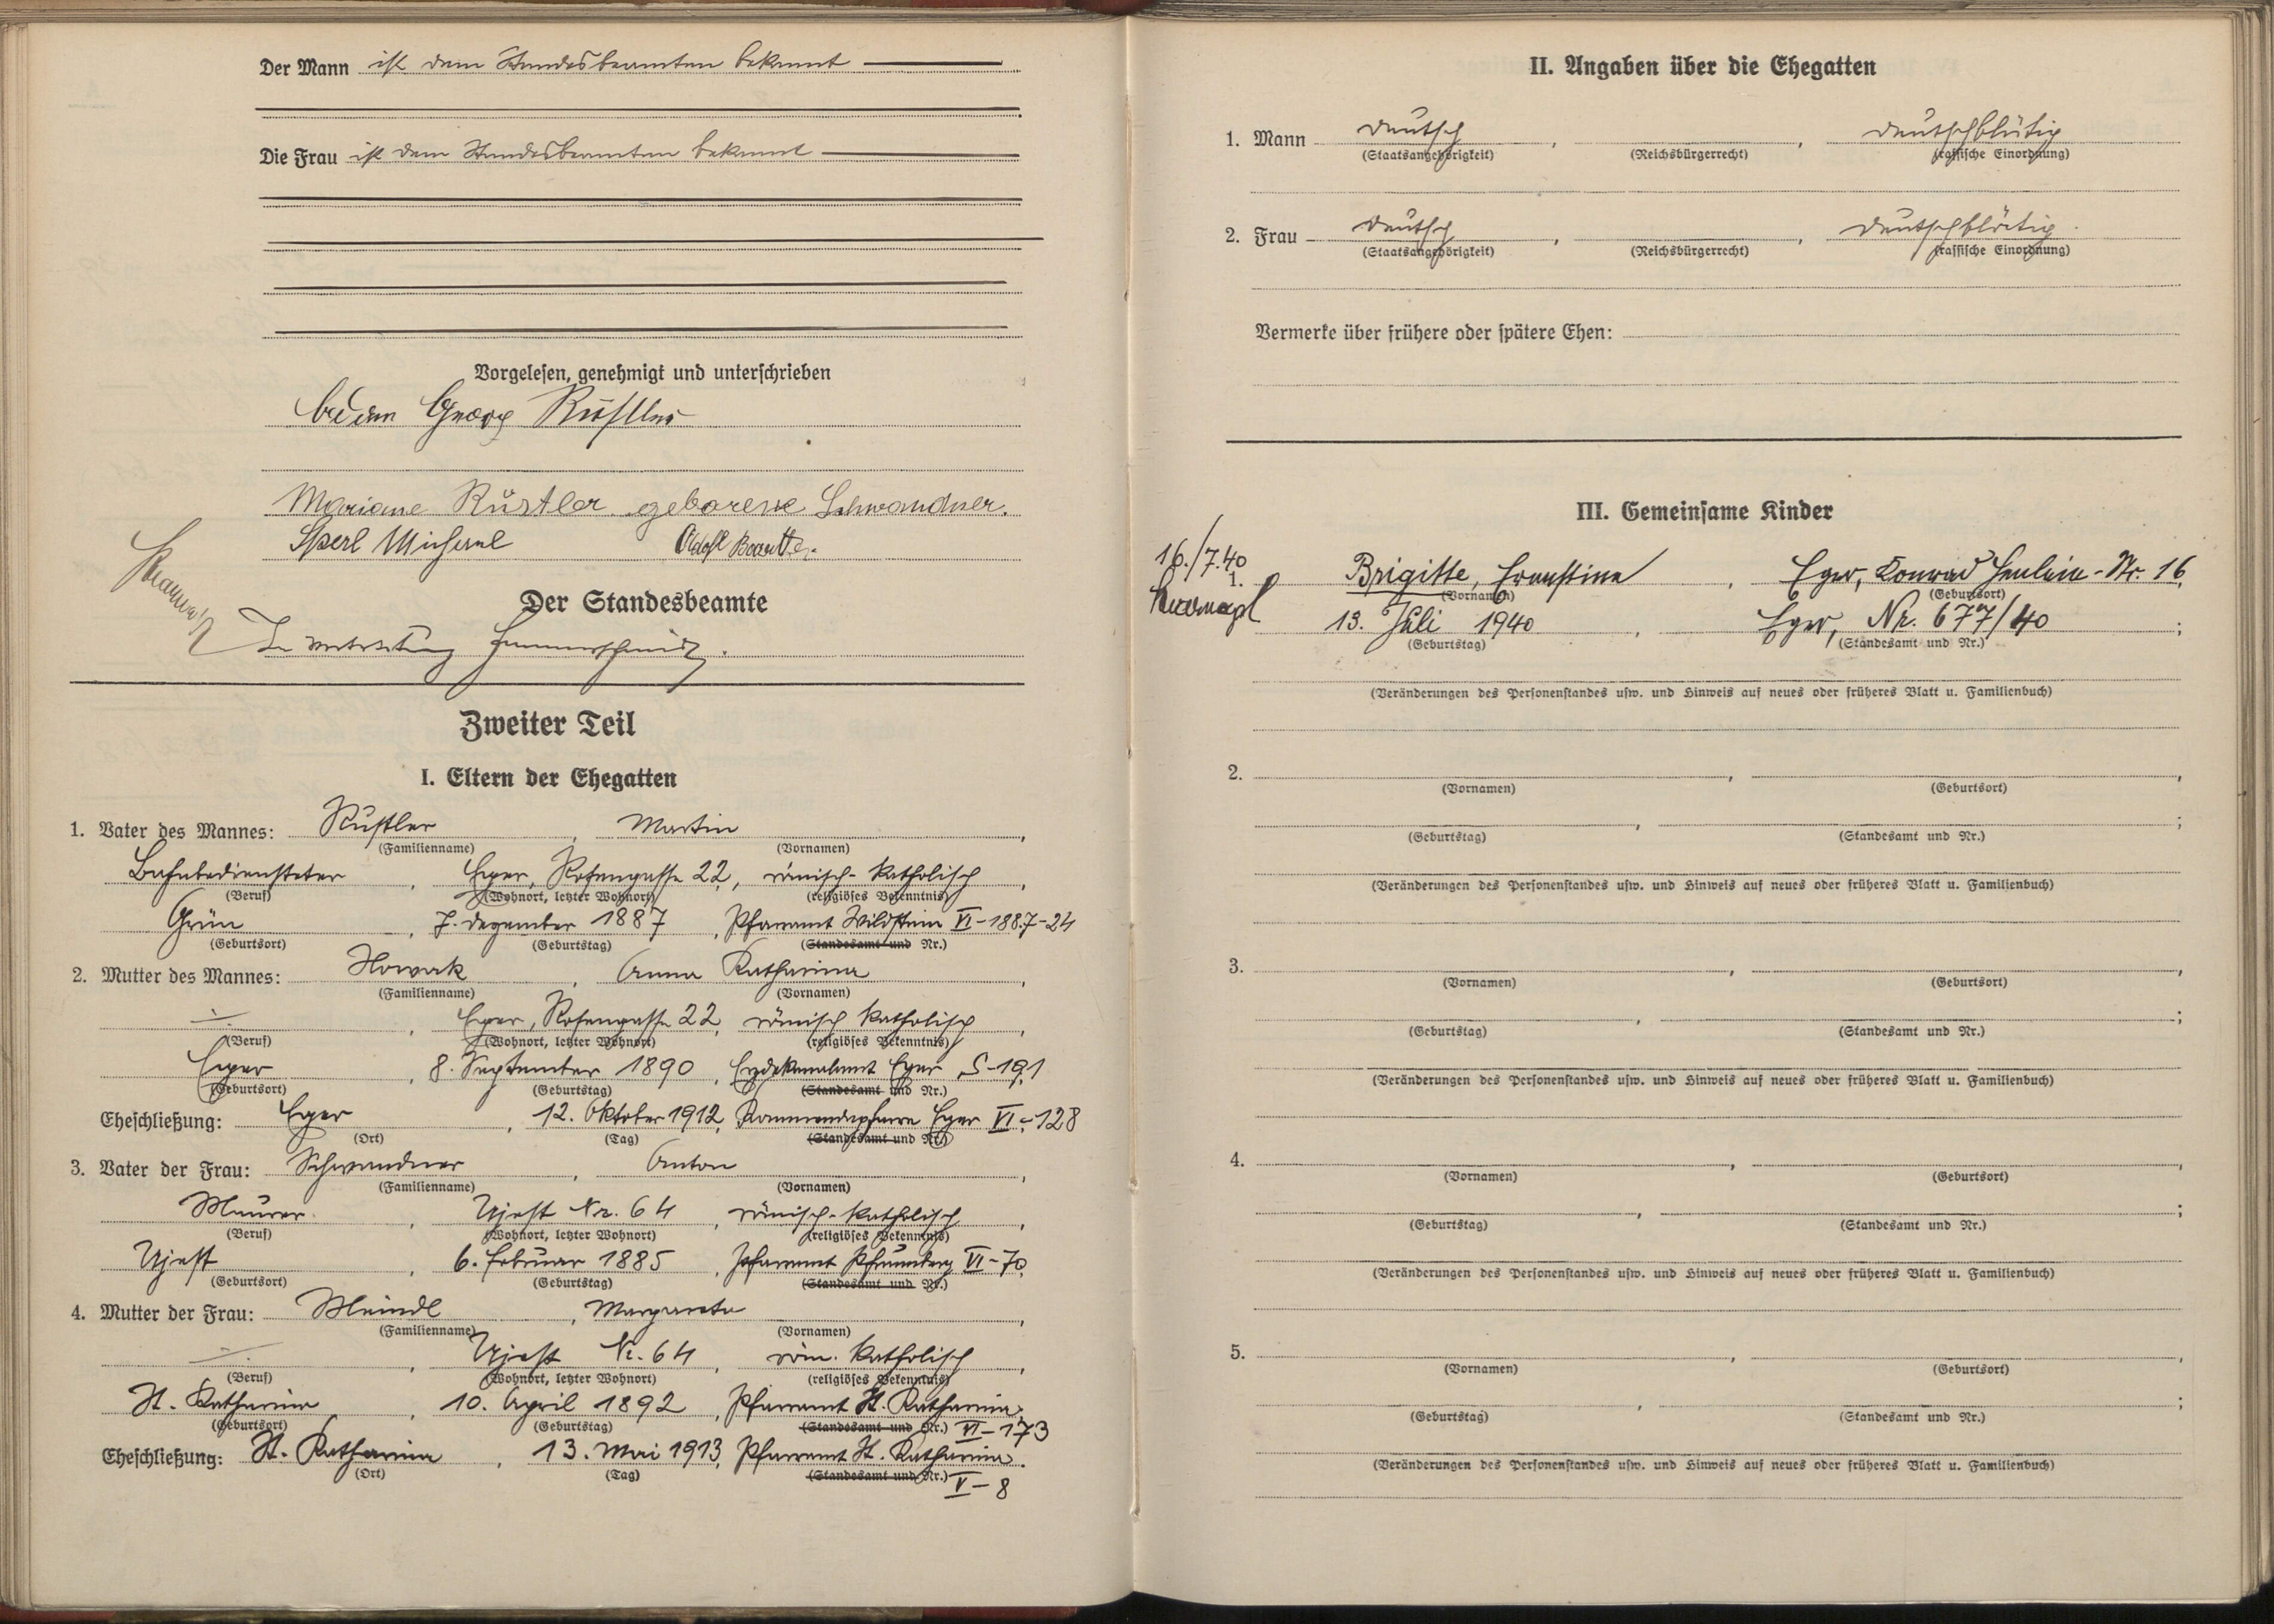 Der Mann ist dem Standesbeamten bekannt
Die Frau ist dem Standesbeamten bekannt
Vorgelesen, genehmigt und unterschrieben
Georg Rustler
Mariane Rustler geborene Schwandner.
Sperl Michael Adolf
Der Standesbeamte
In Vertretung
Zweiter Teil
I. Eltern der Ehegatten
1. Vater des Mannes: Rustler, Martin,
(Familienname) (Vornamen)
Bahnbediensteter, Eger, Rosengasse 22, römisch-katholisch,
(Beruf) (Wohnort, letzter Wohnort) (religiöses Bekenntnis)
Grün, 7. Dezember 1887, Pfarramt Wildstein VI-1887-24
(Geburtsort) (Geburtstag) (Standesamt und Nr.)
2. Mutter des Mannes: Nowak, Anna Katharina,
(Familienname) (Vornamen)
÷, Eger, Rosengasse 22, römisch katholisch,
(Beruf) (Wohnort, letzter Wohnort) (religiöses Bekenntnis)
Eger, 8. September 1890, Erzdekanalamt Eger S-191
(Geburtsort) (Geburtstag) (Standesamt und Nr.)
Eheschließung: Eger, 12. Oktober 1912, Kommendapfarre Eger VI-128
(Ort) (Tag) (Standesamt und Nr.)
3. Vater der Frau: Schwandner, Anton,
(Familienname) (Vornamen)
Maurer, Ujest Nr. 64, römisch-katholisch,
(Beruf) (Wohnort, letzter Wohnort) (religiöses Bekenntnis)
Ujest, 6. Februar 1885, Pfarramt Pfraumberg VI-70
(Geburtsort) (Geburtstag) (Standesamt und Nr.)
4. Mutter der Frau: Meindl, Margareta,
(Familienname) (Vornamen)
÷, Ujest Nr. 64, röm. katholisch,
(Beruf) (Wohnort, letzter Wohnort) (religiöses Bekenntnis)
St. Katharina, 10. April 1892, Pfarramt St. Katharina
(Geburtsort) (Geburtstag) (Standesamt und Nr.) VI-173
Eheschließung: St. Katharina, 13. Mai 1913, Pfarramt St. Katharina
(Ort) (Tag) (Standesamt und Nr.) V-8
II. Angaben über die Ehegatten
1. Mann deutsch, , deutschblütig
(Staatsangehörigkeit) (Reichsbürgerrecht) (rassische Einordnung)
2. Frau deutsch, , deutschblütig
(Staatsangehörigkeit) (Reichsbürgerrecht) (rassische Einordnung)
Vermerke über frühere oder spätere Ehen:
III. Gemeinsame Kinder
16./7.40
1. Brigitte, Ernestine, Eger, Konrad Henlein-Str. 16,
(Vornamen) (Geburtsort)
13. Juli 1940, Eger, Nr. 677/40;
(Geburtstag) (Standesamt und Nr.)
(Veränderungen des Personenstandes usw. und Hinweis auf neues oder früheres Blatt u. Familienbuch)
2. , ,
(Vornamen) (Geburtsort)
, ;
(Geburtstag) (Standesamt und Nr.)
(Veränderungen des Personenstandes usw. und Hinweis auf neues oder früheres Blatt u. Familienbuch)
3. , ,
(Vornamen) (Geburtsort)
, ;
(Geburtstag) (Standesamt und Nr.)
(Veränderungen des Personenstandes usw. und Hinweis auf neues oder früheres Blatt u. Familienbuch)
4. , ,
(Vornamen) (Geburtsort)
, ;
(Geburtstag) (Standesamt und Nr.)
(Veränderungen des Personenstandes usw. und Hinweis auf neues oder früheres Blatt u. Familienbuch)
5. , ,
(Vornamen) (Geburtsort)
, ;
(Geburtstag) (Standesamt und Nr.)
(Veränderungen des Personenstandes usw. und Hinweis auf neues oder früheres Blatt u. Familienbuch)